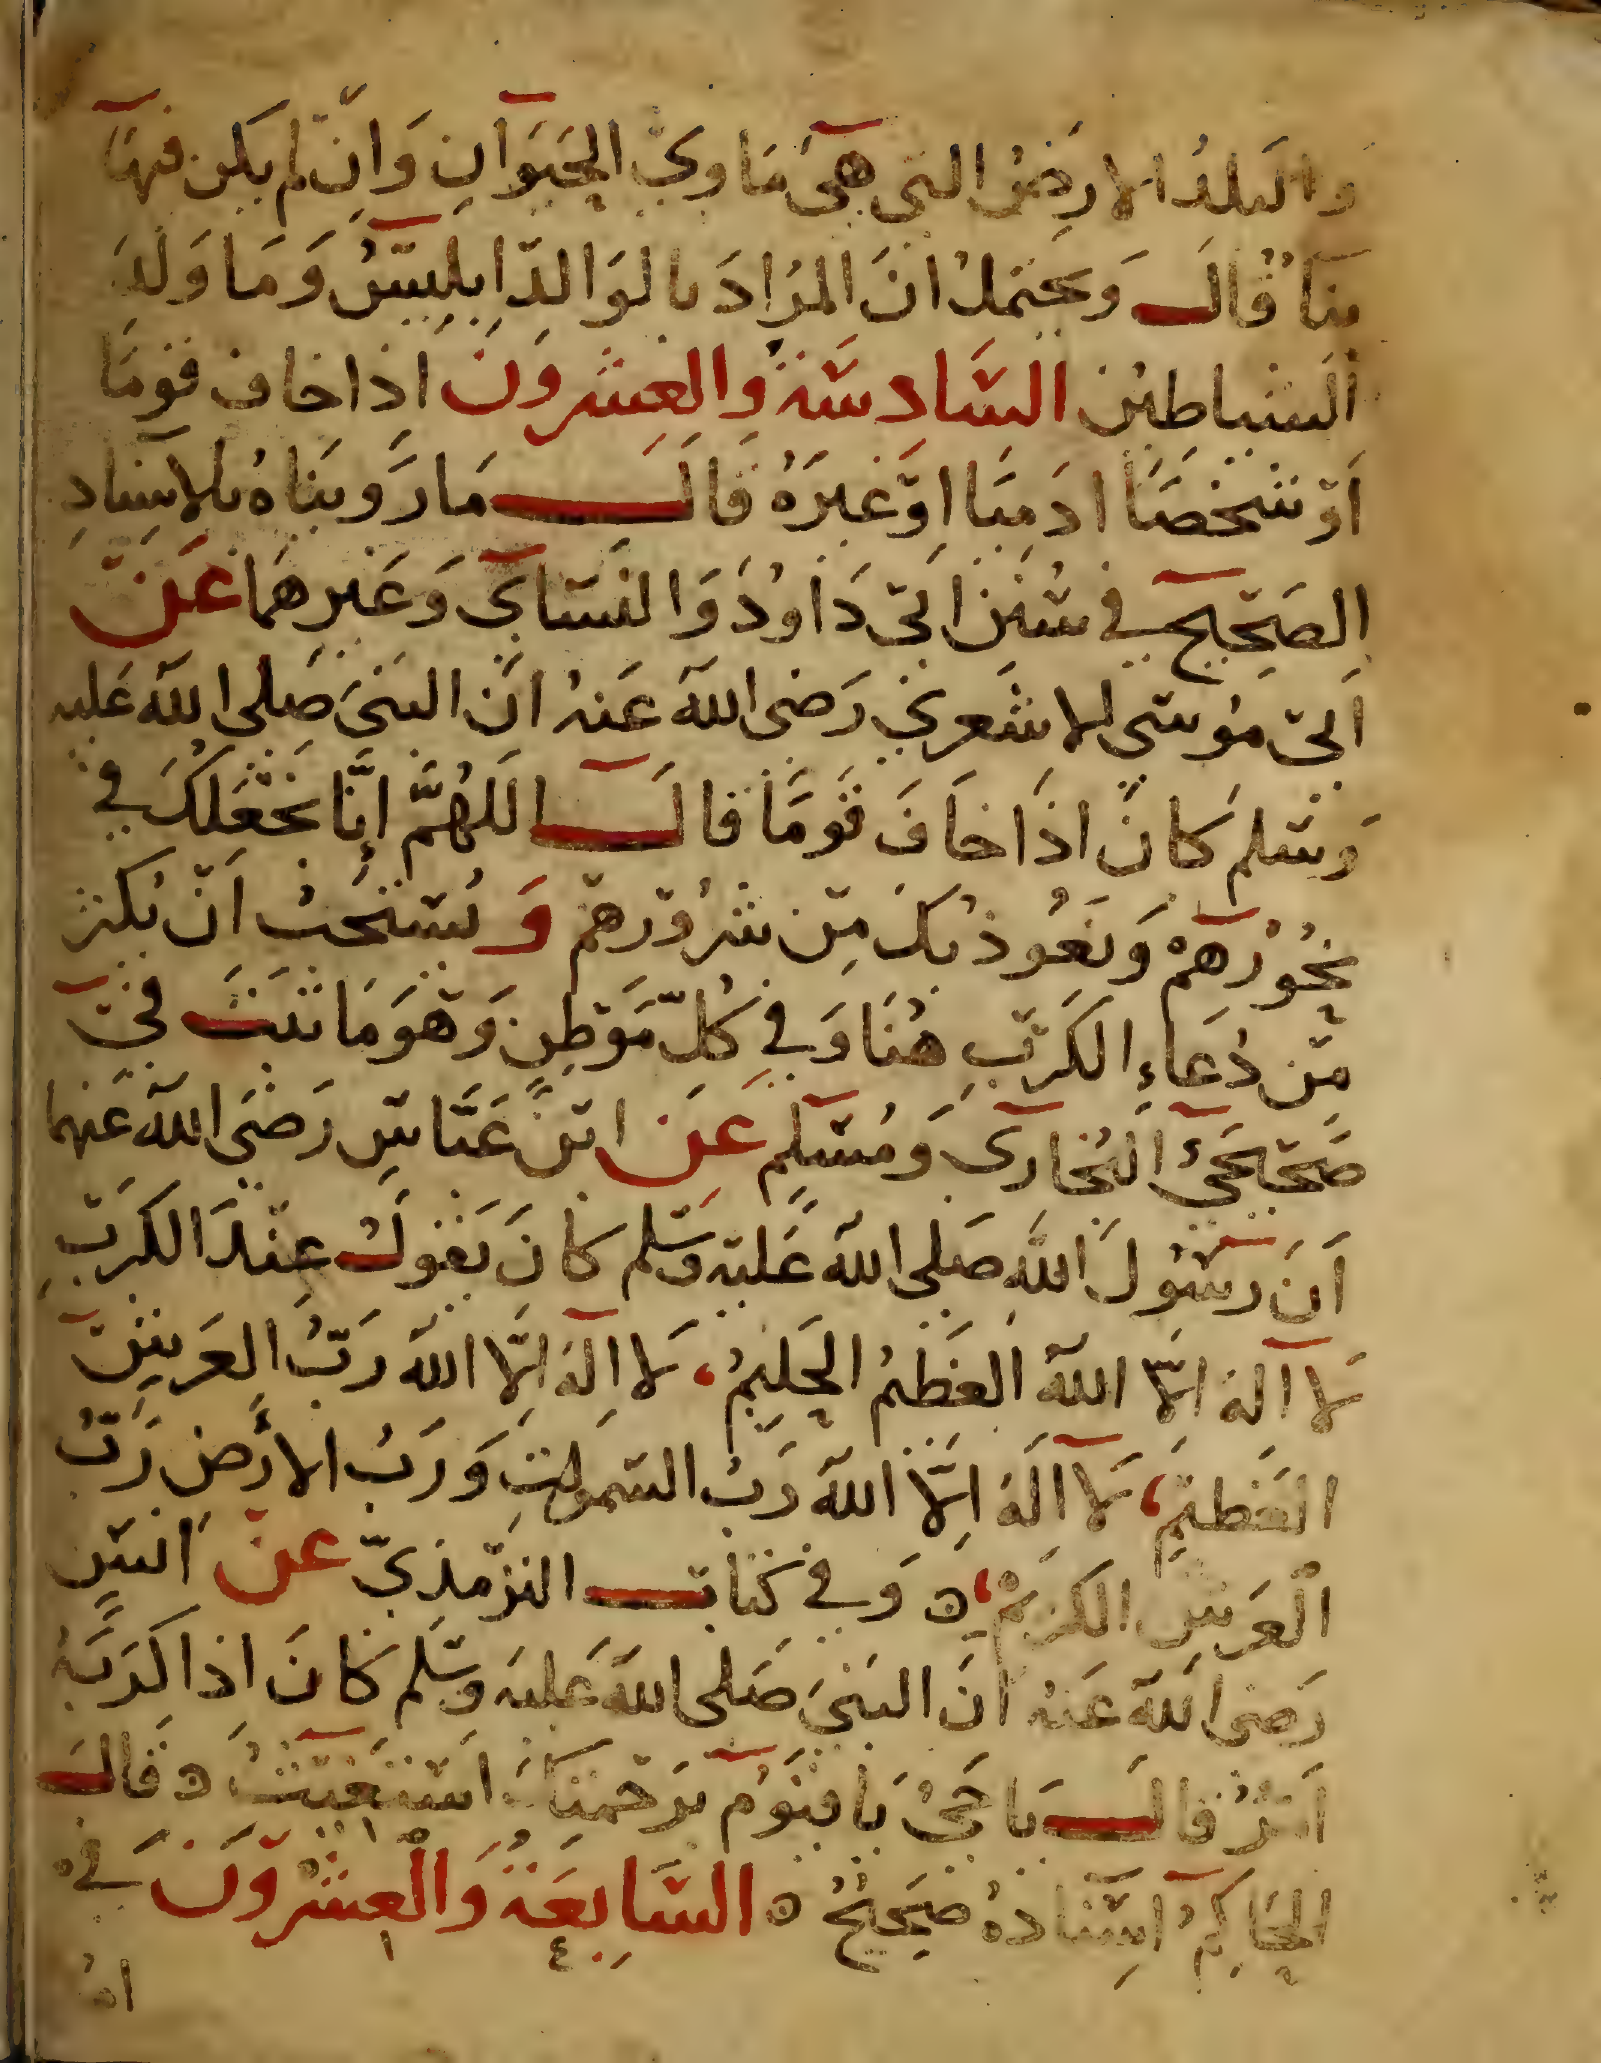 وَالبَلدُ الارَضُ التى هىَ مَاوىَ الحَيَوَانِ وَانْ لم يكن فيهَا
بنَاءٌ قَالَ وَيحتملُ انَ المرُادَ بالوَالدِ ابليسُ وَمَا وَلدَ
الشياطين السَادسَة وَالعِشرُونَ اذا خاف قومًا
اَوْ شخصًا ادَميًا اوْ غيرَهُ قَالَ مَارَويَناهُ بالاسنادِ
الصَحِيح في سُنَن ابىْ دَاوُدَ وَالنسَاىِ وَغَيرهمَا عَنْ
اَبىْ مُوسَى الاشعَرىِ رَضى اللهَ عَنهُ انَ النبىَ صَلى اللهَ عَليه
وَسَلم كانَ اذَا خافَ قَومًا قالَ اللهُمَّ إنَّا نجعَلكَ في
نحُوُرهمْ وَنعُوذُ بكَ مِنْ شرُوْرهمْ وَ يُستحَبُ اَنْ يُكثر
مِنْ دُعَاءِ الكرَبِ هُنَا وَفي كُلّ مَوْطِنٍ وَهوَ مَا ثبَتَ في
صَحيحَىْ البُخارىَ وَمُسلمٍ عَن ابنْ عَبَّاسٍ رَضىَ اللهَ عَنهما
اَنَ رَسُولَ اللهِ صَلى اللهَ عَليْه وَسَلم كانَ يَقولُ عِنْدَ الكرَبِ
لَا الهَ اِلَّا اللهَ العَظيمُ الحَليِمُ، لَا اِلهَ اِلَّا اللهَ رَبُّ العَرشِ
العَظيِم، لَا الَهَ اِلَّا اللهَ رَبُ السَموٰاتِ وَرَبُ الأرَضِ رَبُّ
الْعَرشِ الكريْم، ه وَفي كتابِ الترْمذىّ عنْ انسٍ
رَضى اللهَ عَنهُ انَ النبىَ صَلى اللهَ عَليهَ وَسَلم كانَ اذا كرَبَهُ
اَمْرٌ قالَ يَا حَىُ يَا قيَوُم برَحمتكَ اَستغيثُ ه قَالَ
الحَاكِمُ اِسْنادهُ صَحِيحٌ ه السَابعَةُ وَالْعشرُوْنَ في